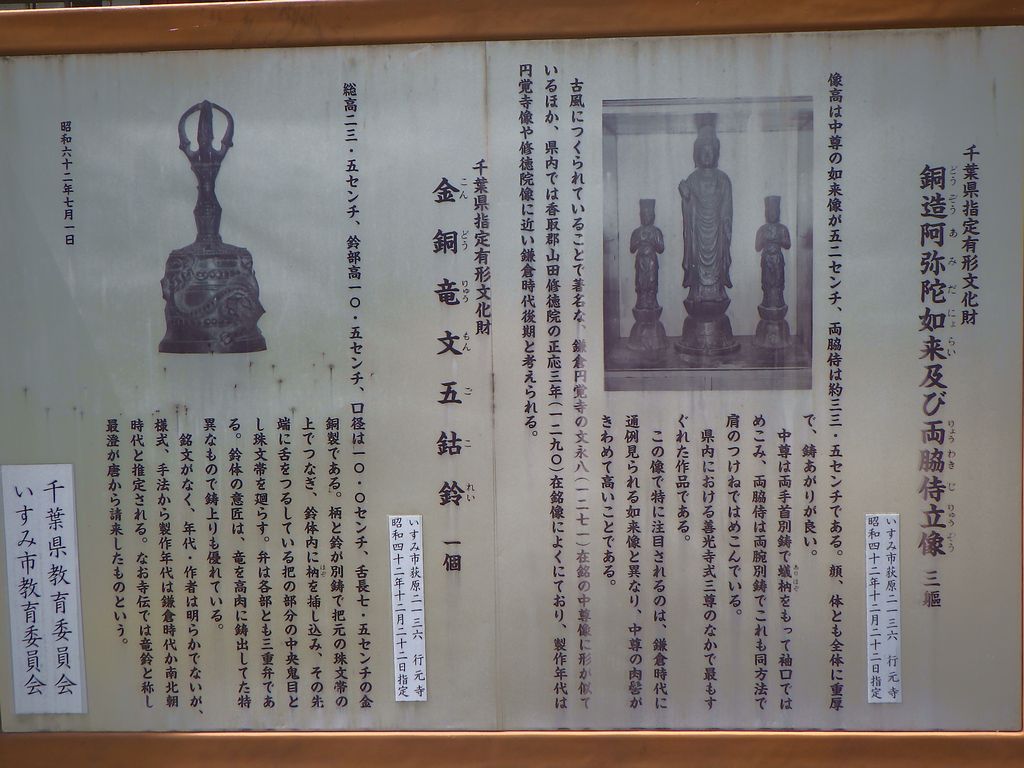 千葉県指定有形文化財
銅造阿弥陀如来及び両脇侍立像 三軀
どうぞうあみだにょらい りょうわきじりゅうぞう
いすみ市荻原二一三六 行元寺
昭和四十二年十二月二十二日指定
像高は中尊の如来像が五二センチ、両脇侍は約三三・五センチである。顔、体とも全体に重厚
で、鋳あがりが良い。
中尊は両手首別鋳で蟻枘をもって袖口では
ありほぞ
めこみ、両脇侍は両腕別鋳でこれも同方法で
肩のつけねではめこんでいる。
県内における善光寺式三尊のなかで最もす
ぐれた作品である。
この像で特に注目されるのは、鎌倉時代に
通例見られる如来像と異なり、中尊の肉髻が
きわめて高いことである。
古風につくられていることで著名な、鎌倉円覚寺の文永八(一二七一)在銘の中尊像に形が似て
いるほか、県内では香取郡山田修徳院の正応三年(一二九〇)在銘像によくにており、製作年代は
円覚寺像や修徳院像に近い鎌倉時代後期と考えられる。
千葉県指定有形文化財
金銅竜文五鈷鈴 一個
こんどうりゅうもんごこれい
いすみ市荻原二一三六 行元寺
昭和四十二年十二月二十二日指定
総高二三・五センチ、鈴部高一〇・五センチ、口径は一〇・〇センチ、舌長七・五センチの金
銅製である。柄と鈴が別鋳で把元の珠文帯の
上でつなぎ、鈴体内に枘を挿し込み、その先
ほぞ
端に舌をつるしている把の部分の中央鬼目と
し珠文帯を廻らす。弁は各部とも三重弁であ
る。鈴体の意匠は、竜を高肉に鋳出してた特
異なもので鋳上りも優れている。
銘文がなく、年代・作者は明らかでないが、
様式、手法から製作年代は鎌倉時代か南北朝
時代と推定される。なお寺伝では竜鈴と称し
最澄が唐から請来したものという。
昭和六十二年七月一日
千葉県教育委員会
いすみ市教育委員会